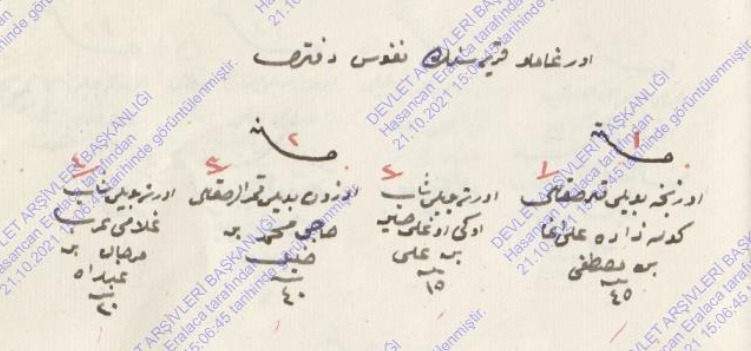 اورغاجلو قریه‌سنك نفوس دفتری
خانه
۱
۱
اورتجه بویلی قمرالصقاللی
كوله زاده علی اغا
بن مصطفی
٤٥
۲
اورته بویلی شاب
اوكی اوغلی
بن علی
۱٥
خانه
۲
۳
اوزون بویلی قمرالصقاللی
حاجی محمد بن
٤٠
٤
اورته بویلی شاب
غلامی عرب
مرجان بن
عبدالله
۲۰
DEVLET ARŞİVLERİ BAŞKANLIĞI
Hasancan Eralaca tarafından
21.10.2021 15:06:45 tarihinde görüntülenmiştir.